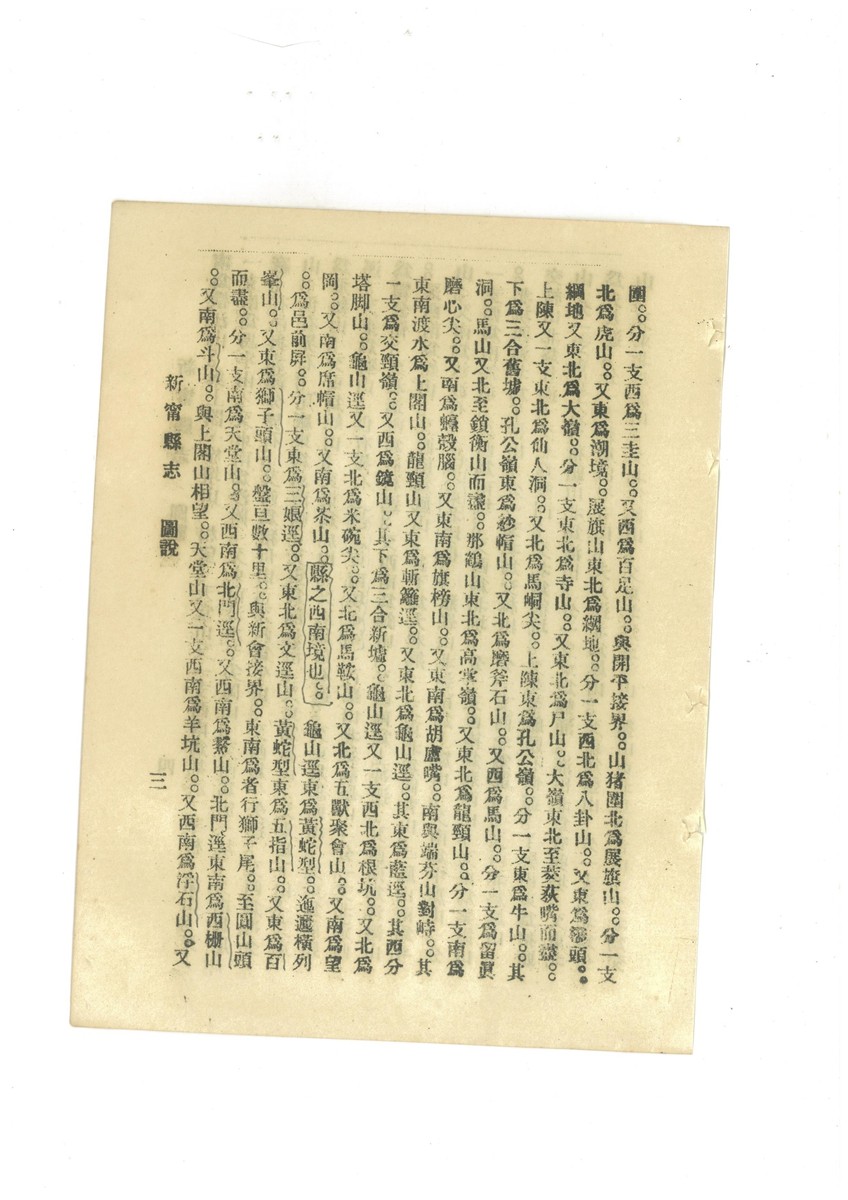 圍。。分一支西爲三圭山。。又西爲百足山。。與開平接界。。山猪圍北爲展旗山。。分一支
北爲虎山。。又東爲潮境。。展旗山東北爲綱地。。分一支西北爲八卦山。。又東爲頭。。
綱地又東北爲大嶺。。分一支東北爲寺山。。又東北爲戸山。。大嶺東北至菱荻嘴而盡。。
上陳又一支東北爲仙人洞。。又北爲馬峒尖。。上陳東爲孔公嶺。。分一支東爲牛山。。其
下爲三合舊墟。。孔公嶺東爲紗帽山。。又北爲磨斧石山。。又西爲馬山。。分一支爲留眞
洞。。馬山又北至鎖衡山而盡。。那鷄山東北爲高掌嶺。。又東北爲龍頸山。。分一支南爲
磨心尖。。又南爲殼腦。。又東南爲旗榜山。。又東南爲胡盧嘴。。南與端芬山對峙。。其
東南渡水爲上閣山。。龍頸山又東爲斬籬逕。。又東北爲龜山逕。。其東爲藍逕。。其西分
一支爲交頸嶺。。又西爲鏡山。。其下爲三合新墟。。龜山逕又一支西北爲根坑。。又北爲
塔脚山。。龜山逕又一支北爲米碗尖。。又北爲馬鞍山。。又北爲五獸聚會山。。又南爲望
岡。。又南爲席帽山。。又南爲茶山。。縣之西南境也。。龜山逕東爲黃蛇型。。迤邐橫列
。。爲邑前屏。。分一支東爲三娘逕。。又東北爲文逕山。。黃蛇型東爲五指山。。又東爲百
峯山。。又東爲獅子頭山。。盤亘數十里。。與新會接界。。東南爲者行獅子尾。。至圓山頭
而盡。。分一支南爲天堂山。。又西南爲北門逕。。又西南爲鰲山。。北門逕東南爲西柵山
。。又南爲斗山。。與上閣山相望。。天堂山又一支西南爲羊坑山。。又西南爲浮石山。。又
新甯縣志 圖說 三